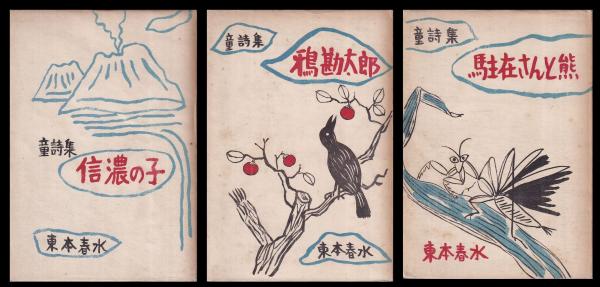 童詩集
信濃の子
東本春水
童詩集
鴉勘太郎
東本春水
童詩集
駐在さんと熊
東本春水